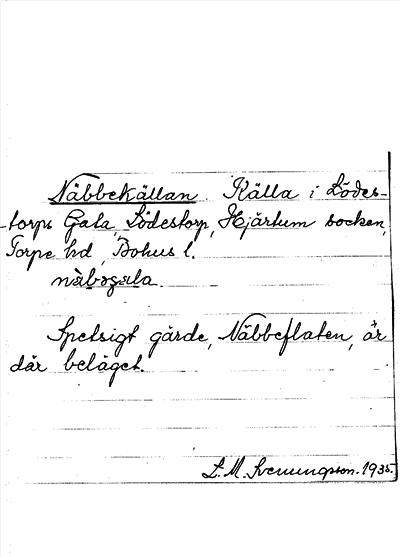 Näbbekällan. Källa i Lödes-
-torps Gata, Lödestorp, Hjärtum socken,
Torpe hd, Bohus l.
Spetsigt gärde, Näbbeflaten, är
där beläget.
S. M. Svenungsson. 1935.